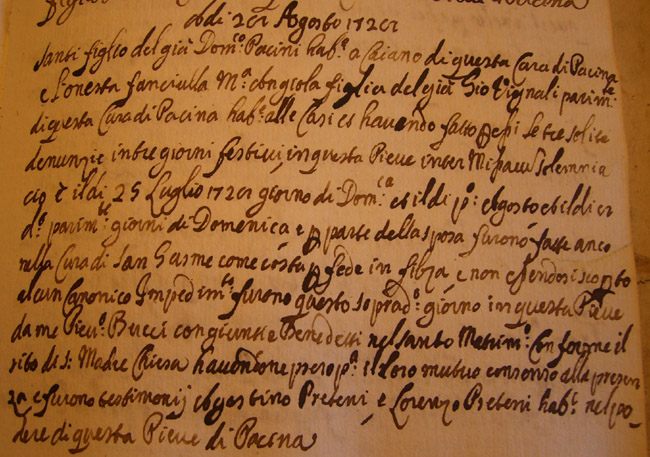 Adi 28 Agosto 1728
Santi figlio del già Dom:º Pacini hab:e a Caiano di questa Cura di Pacina
e l'onesta fanciulla M:a Angiola figlia del già Gio: Vignali parim:te
di questa Cura di Pacina hab:e alle Case havendo fatto p essi le tre solite
denunzie in tre giorni festivi in questa Pieve inter Missarum Solemnia
cio è il di 25 Luglio 1728 giorno di Dom:ca et il di pº: Agosto et il di 8
dº parim:te giorni di Domenica e p parte della sposa furono fatte anco
nella Cura di San Gusme come costa p fede in filza e non essendosi scopto
alcun Canonico Impedim:to furono questo soprad:º giorno in questa Pieve
da me Piev:º Bucci congiunti e Benedetti nel santo Matrim:º Conforme il
rito di S: Madre Chiesa havendone preso pª il loro mutuo consenso alla presen
za e furono testimonij Agostino Preteni e Lorenzo Preteni hab:i nel po
dere di questa Pieve di Pacina